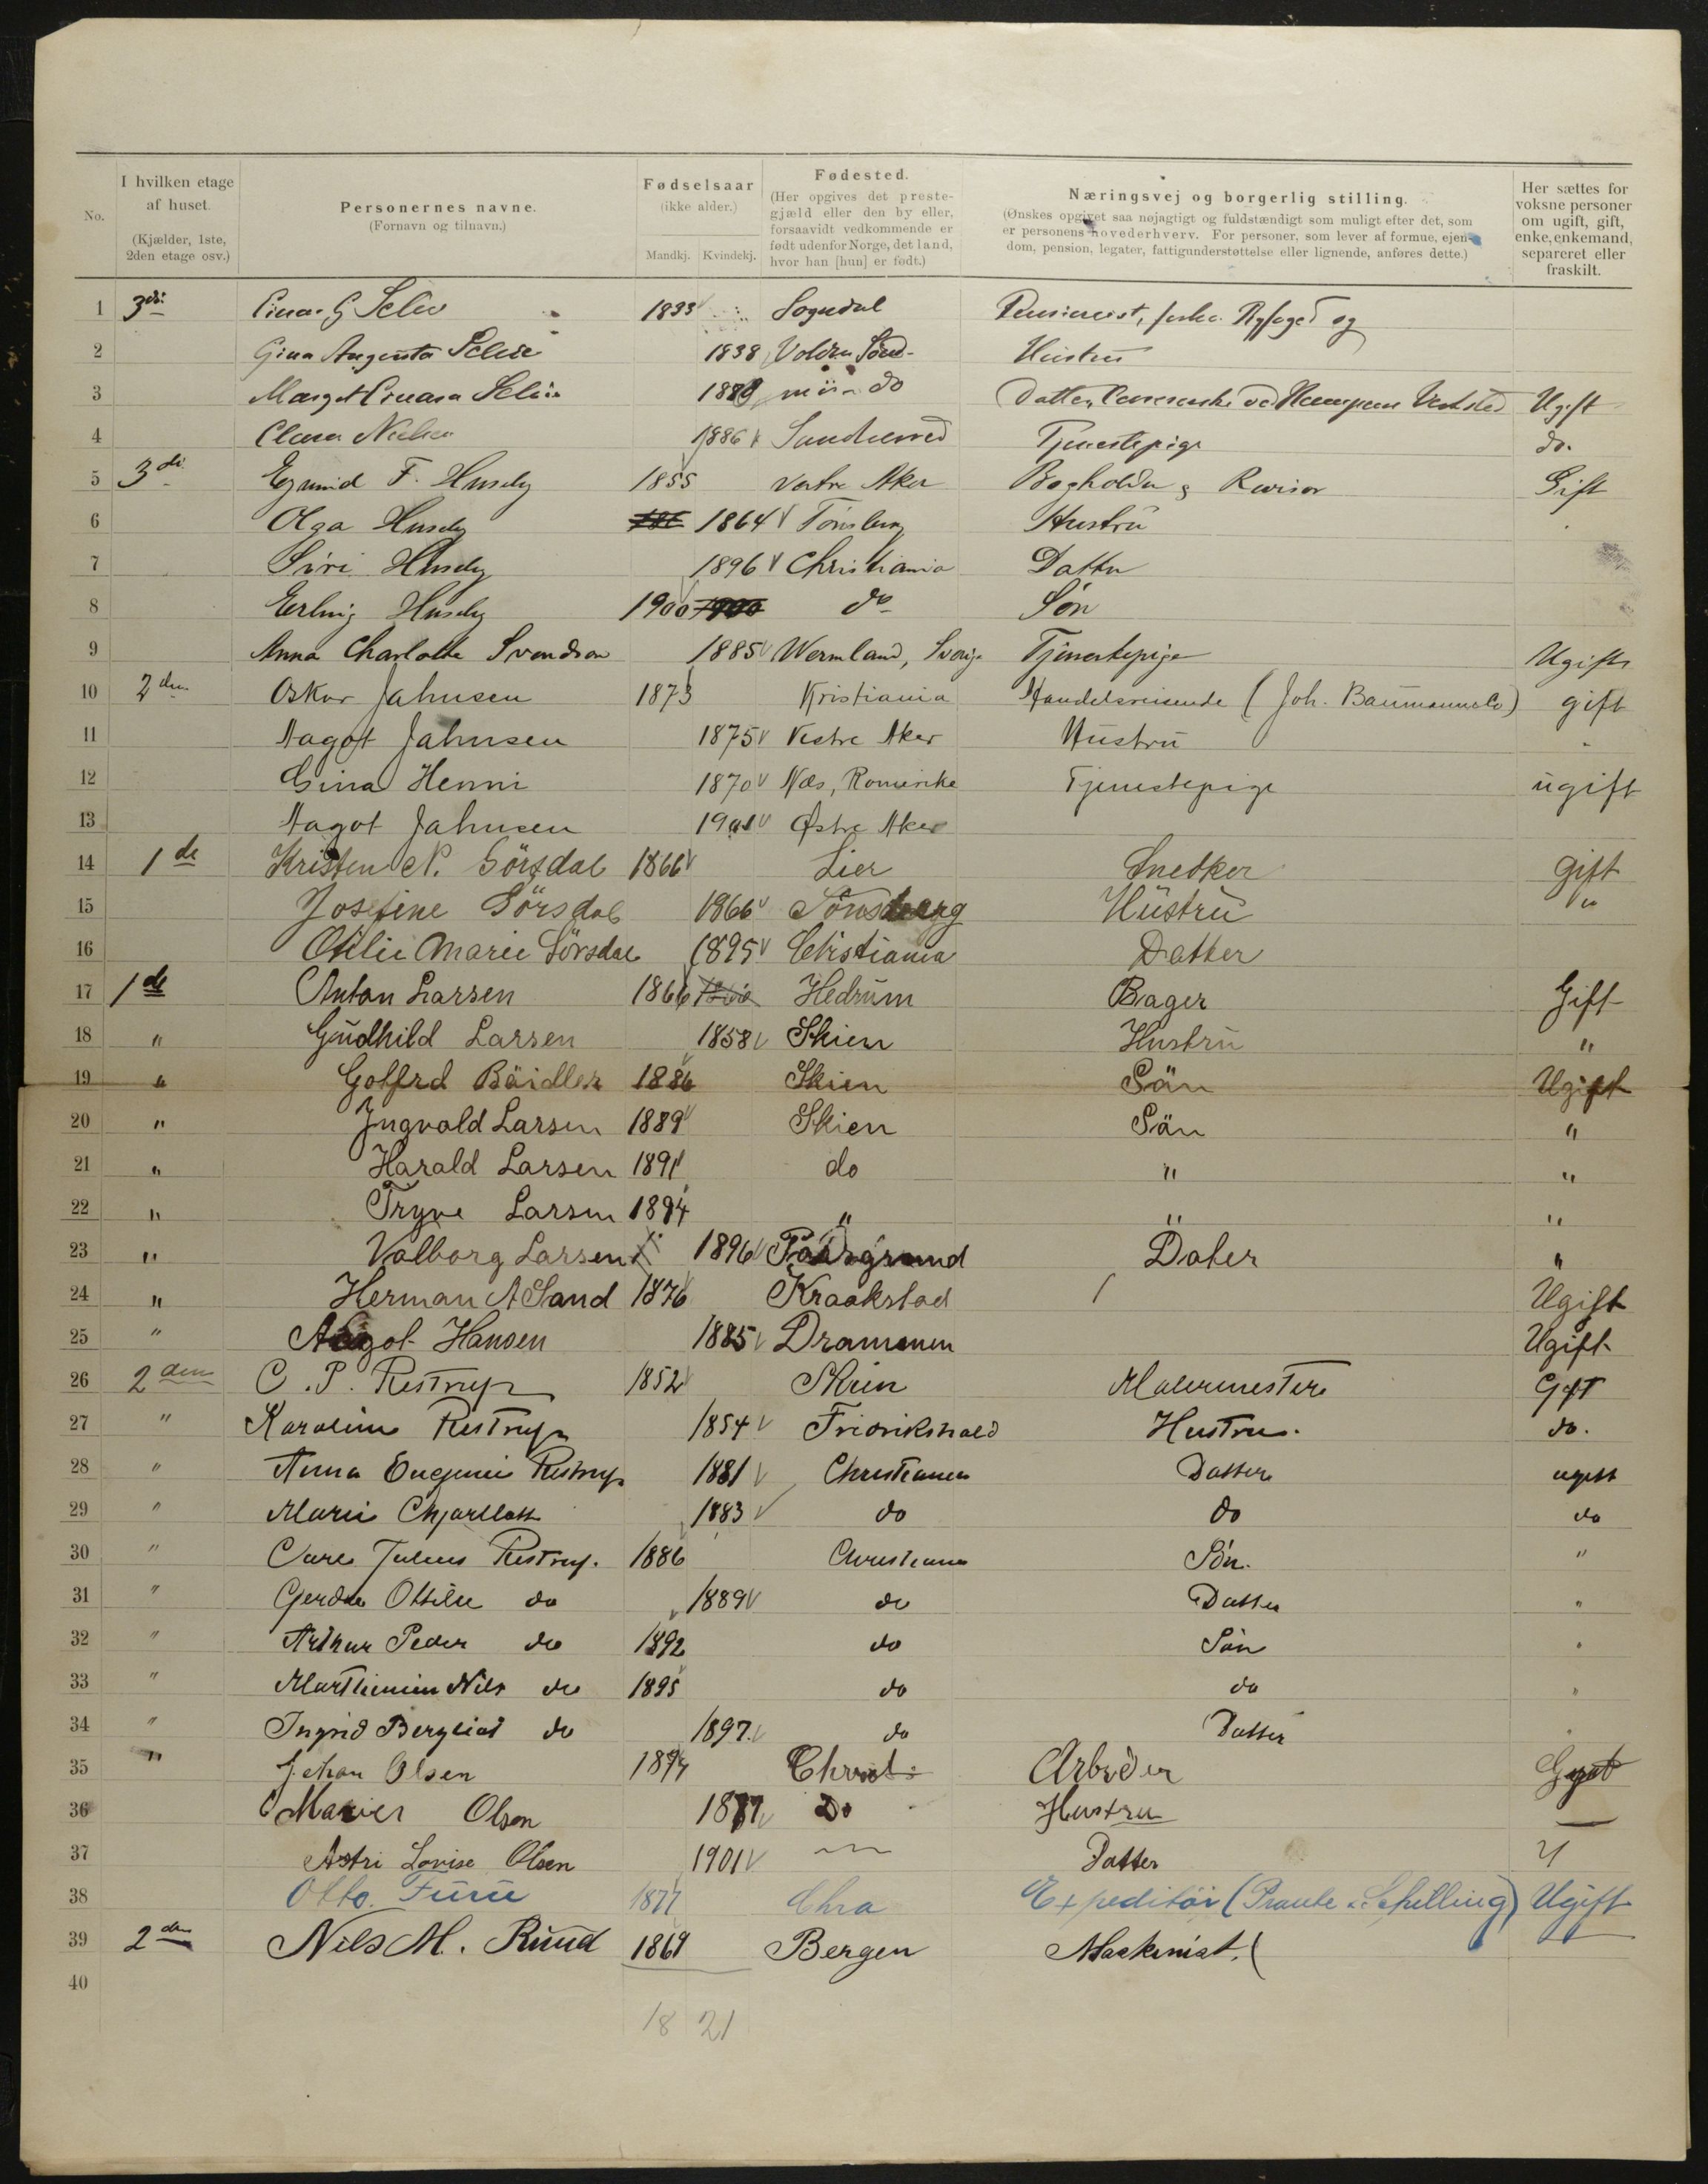 No.
I hvilken etage af huset. (Kjælder, 1ste, 2den etage osv.)
Personernes navne. (Fornavn og tilnavn.)
Fødselsaar (ikke alder.) Mandkj. Kvindekj.
Fødested. (Her opgives det prestegjæld eller den by eller, forsaavidt vedkommende er født udenfor Norge, det land, hvor han [hun] er født.)
Næringsvej og borgerlig stilling. (Ønskes opgivet saa nøjagtigt og fuldstændigt som muligt efter det, som er personens hovederhverv. For personer, som lever af formue, ejendom, pension, legater, fattigunderstøttelse eller lignende, anføres dette.)
Her sættes for voksne personer om ugift, gift, enke, enkemand, separeret eller fraskilt.
1 3di Einar G 1833 Sogndal Pensionist, og
2 Gina Augusta 1838 Volden Hustru
3 Margot do Datter, Ugift
4 Clara 1886 Sandherred Tjenestepige do.
5 3di Egmind F. Huseby 1855 Vestre Aker Bogholder & Revisor Gift
6 Olga Huseby 186 1864 Tønsberg Hustrü
7 Siri Huseby 1896 Christiania Datter
8 Erling Huseby 1900 1900 do Søn
9 Anna Charlotte Svendsen 1885 Wermland, Sverige Tjenestepige Ugift
10 2den Oskar Jahnsen 1873 Kristiania Handelsreisende (Joh. Baumann & Co) gift
11 Aagot Jahnsen 1875 Vestre Aker Hustrü "
12 Gina Henni 1870 Næs, Romerike Tjenestepige ügift
13 Aagot Jahnsen 1901 Østre Aker
14 1de Kristen N. Sörsdal 1866 Lier Snedker gift
15 Josefine Sörsdal 1866 Tönsberg Hüstrü "
16 Otilie Marie Sörsdal 1895 Christiania Datter
17 1de Anton Larsen 1866 1866 Hedrum Bager Gift
18 " Gudhild Larsen 1858 Skien Hustru "
19 " Gotfrd Bäidler 1886 Skien Sän Ugift
20 " Jngvald Larsen 1889 Skien Sän "
21 " Harald Larsen 1891 do " "
22 " Tryve Larsen 1894 " " "
23 " Valborg Larsen 1896 Porsgrund Dater "
24 " Herman A Sand 1876 Kraakstad / Ugift
25 " Aagot Hansen 1885 Drammen Ugift
26 2den C. P. Restrup 1852 Skien Malermester Gift
27 " Karoline Restrup 1854 Fridrikshald Hustru. do.
28 " Anna Eugenie Restrup 1881 Christiania Datter ugift
29 " Marie Chjarllott 1883 do do do
30 " Carl Julius Restrup. 1886 Christiania Sön. "
31 " Gerda Ottilie do 1889 do Datter "
32 " Arthur Peder do 1892 do Sön "
33 " Marthinius Nils do 1895 do do "
34 " Ingrid Bergliot do 1897 do Datter "
35 " Johan Olsen 1874 Christ: Arbeider Gift
36 Marie Olsen 1877 Do Hustru —
37 Astri Lovise Olsen 1901 Datter
38 Otto. Furu 1877 Chra Expeditör (Schilling) Ugift
39 2den Nils M. Ruud 1869 Bergen Maskinist.
40
18 21